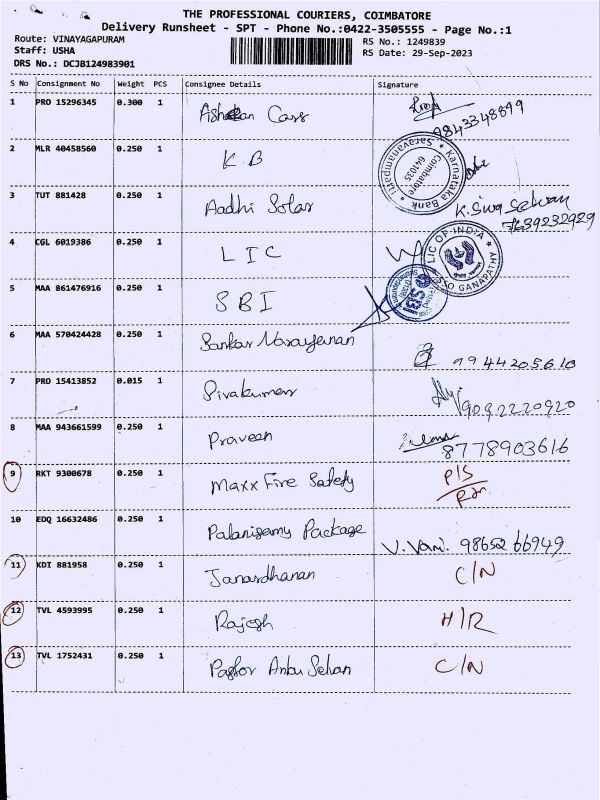 THE PROFESSIONAL COURIERS, COIMBATORE
Delivery Runsheet - SPT - Phone No.:0422-3505555 - Page No.:1
Route: VINAYAGAPURAM
RS No.: 1249839
Staff: USHA
RS Date: 29-Sep-2023
DRS No.: DCJB124983901
S No Consignment No Weight PCS Consignee Details Signature
1 PRO 15296345 0.300 1 Ashokan Cars
9843348899
2 MLR 40458560 0.250 1 K B
Karnataka Bank Saravanampatti Coimbatore 641035
3 TUT 881428 0.250 1 Aadhi Solar K. Siva Selvan
7639232929
4 CGL 6019386 0.250 1 L I C
LIC OF INDIA GANAPATHY
5 MAA 861476916 0.250 1 S B I
6 MAA 570424428 0.250 1 Sankar Narayanan
9944205610
7 PRO 15413852 0.015 1 Sivakumar
9092220920
8 MAA 943661599 0.250 1 Praveen
8778903616
9 RKT 9300678 0.250 1 Maxx Fire Safety P/S
10 EDQ 16632486 0.250 1 Palanisamy Package V. Vani. 98652 66949
11 KDI 881958 0.250 1 Janardhanan C/N
12 TVL 4593995 0.250 1 Rajesh H/R
13 TVL 1752431 0.250 1 Pastor Anbu Selvan C/N